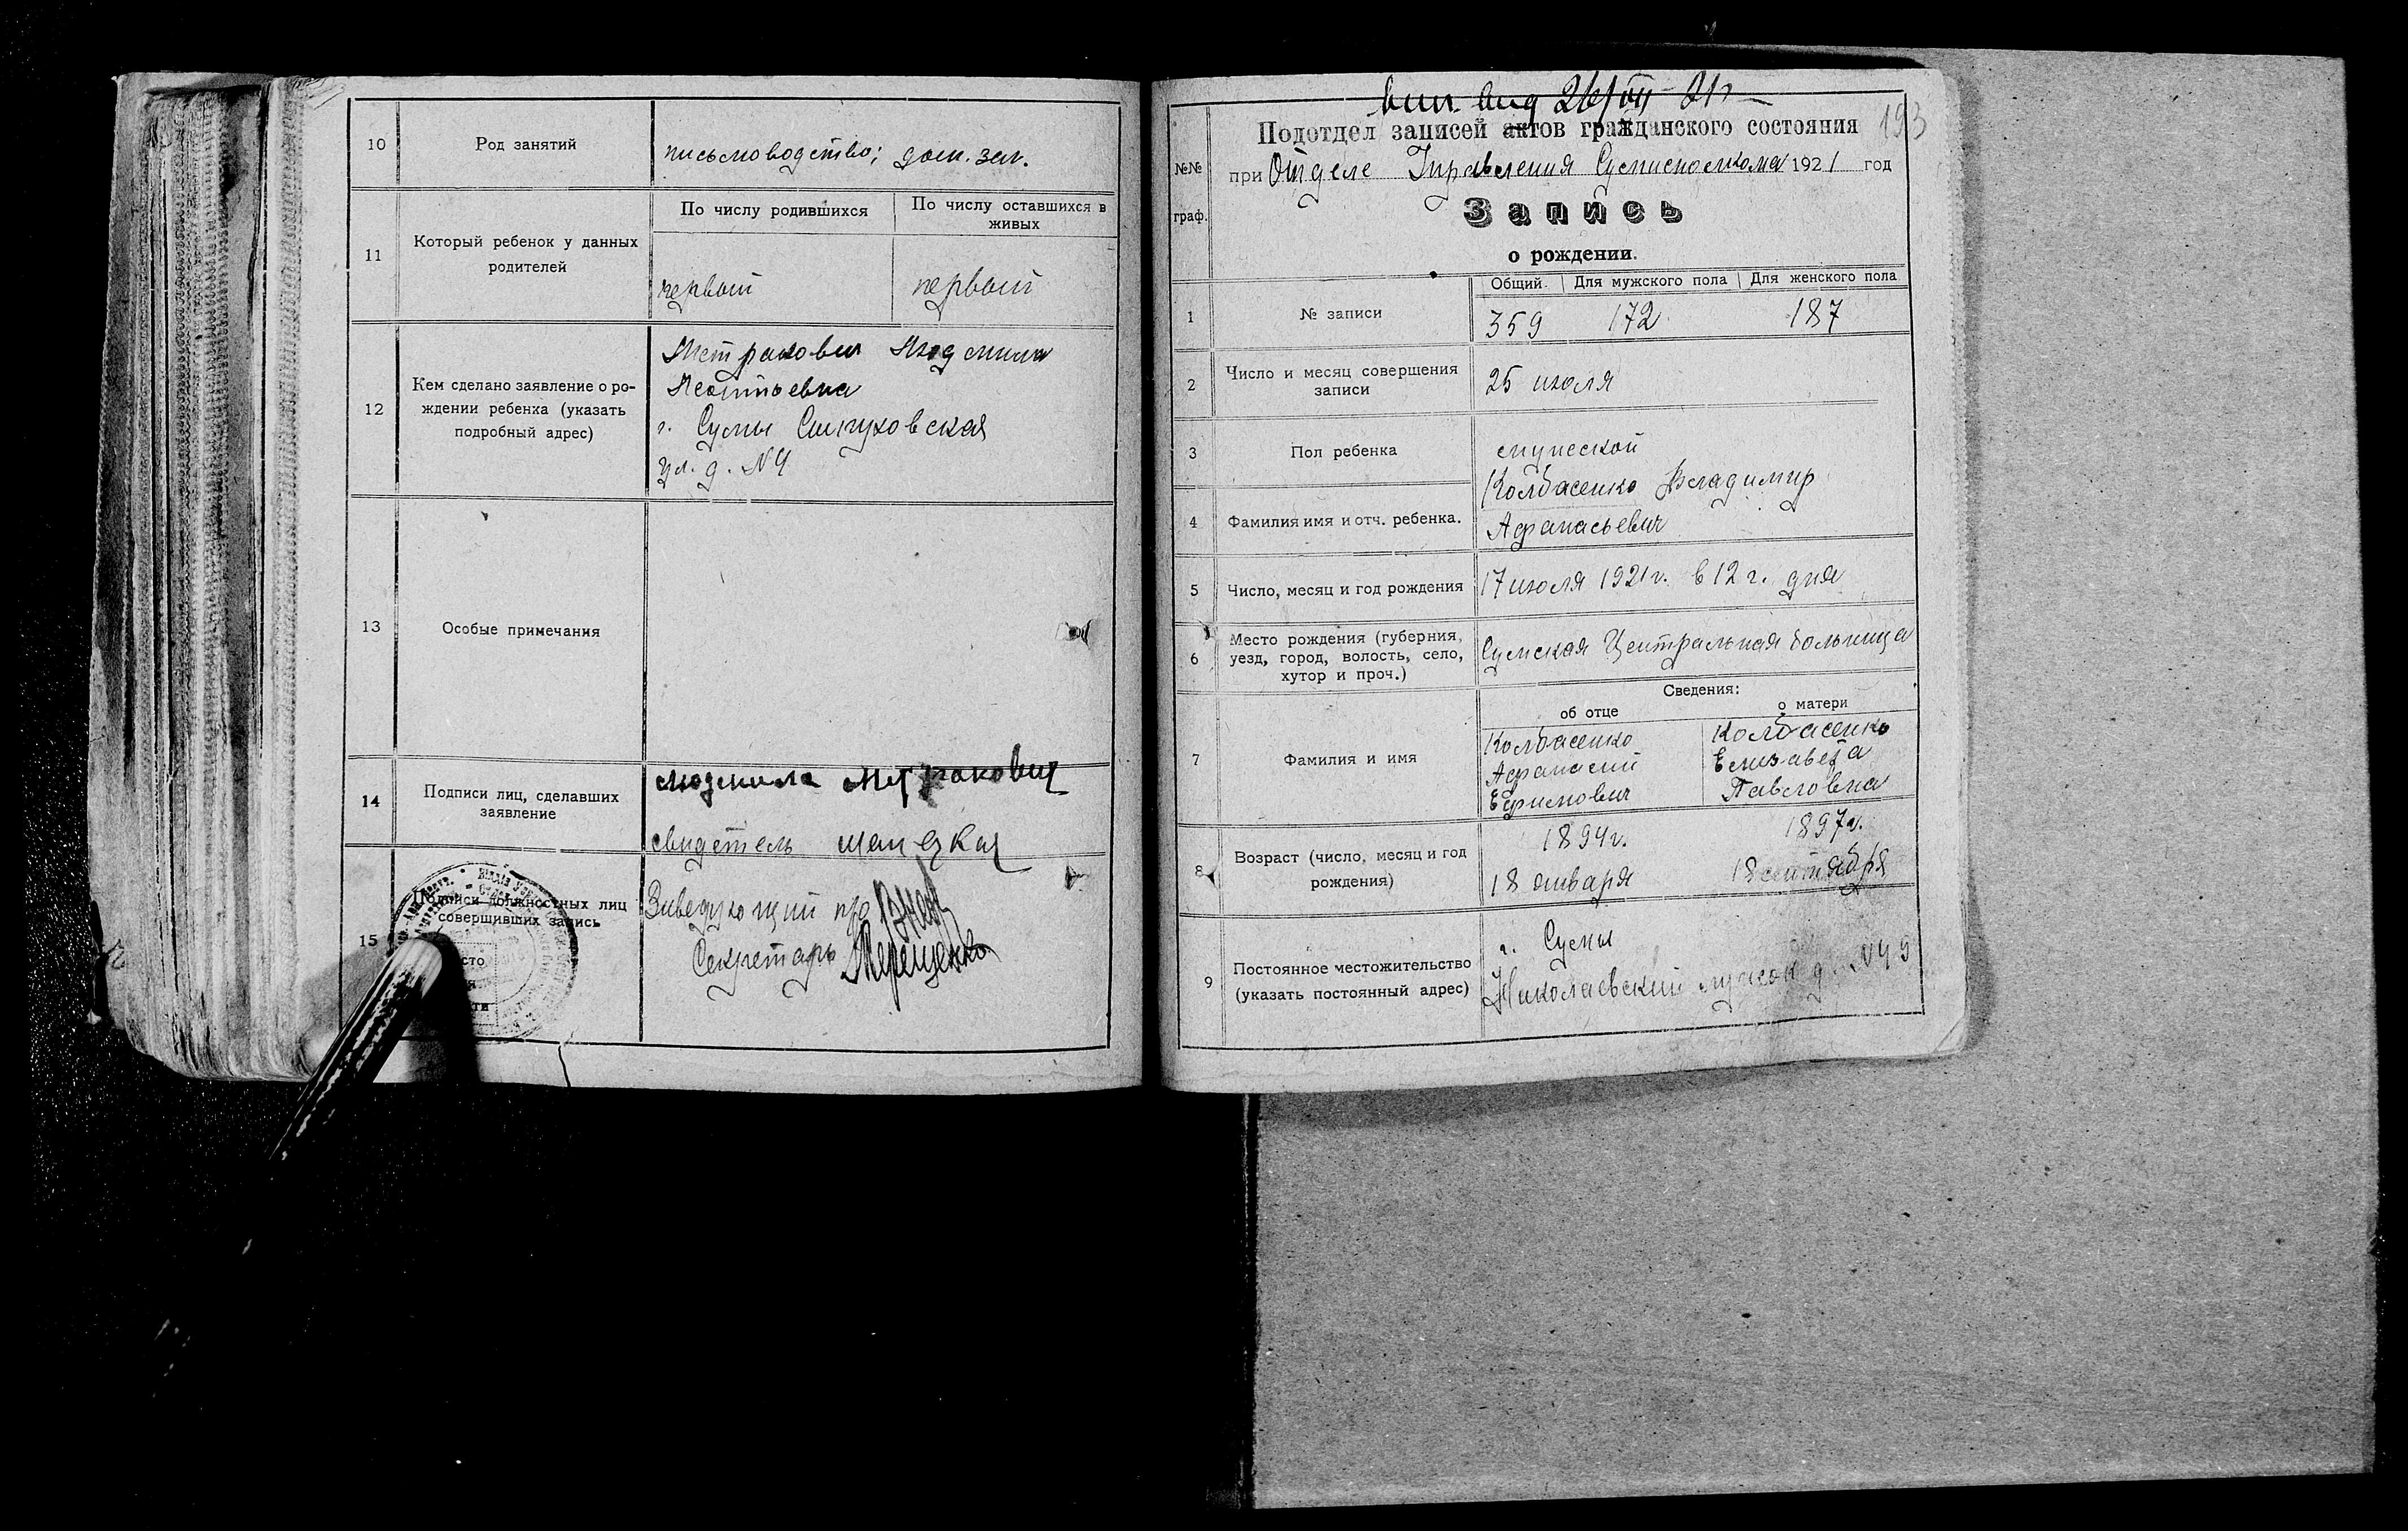 10
Род занятий
письмоводство; дом. зан.
11
Который ребенок у данных
родителей
По числу родившихся
По числу оставшихся в
живых
первый
первый
12
Кем сделано заявление о ро-
ждении ребенка (указать
подробный адрес)
Митракович Людмила
Леонтьевна
г. Сумы
ул. д. N4
13
Особые примечания
14
Подписи лиц, сделавших
заявление
Людмила Митракович
свидетель
15
Подписи должностных лиц
совершивших запись
Заведующий п/о
Секретарь Терещенко
вип. вид 26/VII 21г
193
№№
граф.
Подотдел записей актов гражданского состояния
при Отделе Управления Сумисполкома 1921 год
Запись
о рождении.
Общий. Для мужского пола Для женского пола
1
№ записи
359 172 187
2
Число и месяц совершения
записи
25 июля
3
Пол ребенка
мужской
4
Фамилия имя и отч. ребенка.
Колбасенко Владимир
Афанасьевич
5
Число, месяц и год рождения
17 июля 1921 г. в 12 г. дня
6
Место рождения (губерния,
уезд, город, волость, село,
хутор и проч.)
Сумская Центральная больница
Сведения:
об отце
о матери
7
Фамилия и имя
Колбасенко
Афанасий
Ефимович
Колбасенко
Елизавета
Павловна
8
Возраст (число, месяц и год
рождения)
1894 г.
18 января
1897 г.
18 сентября
9
Постоянное местожительство
(указать постоянный адрес)
г. Сумы
Николаевский д. N49